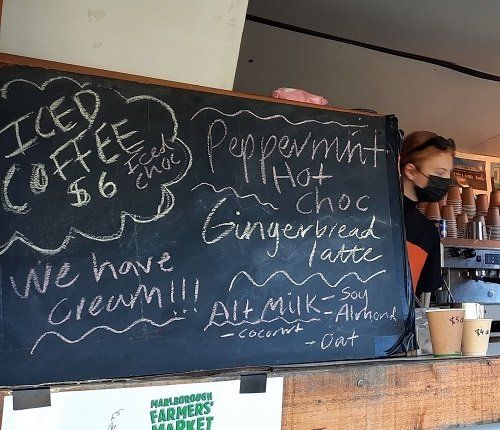 ICED
COFFEE
$6
Iced
choc
We have
cream!!!
Peppermint
Hot
choc
Gingerbread
latte
Alt Milk = Soy
- Almond
- coconut
- Oat
MARLBOROUGH
FARMERS'
MARKET